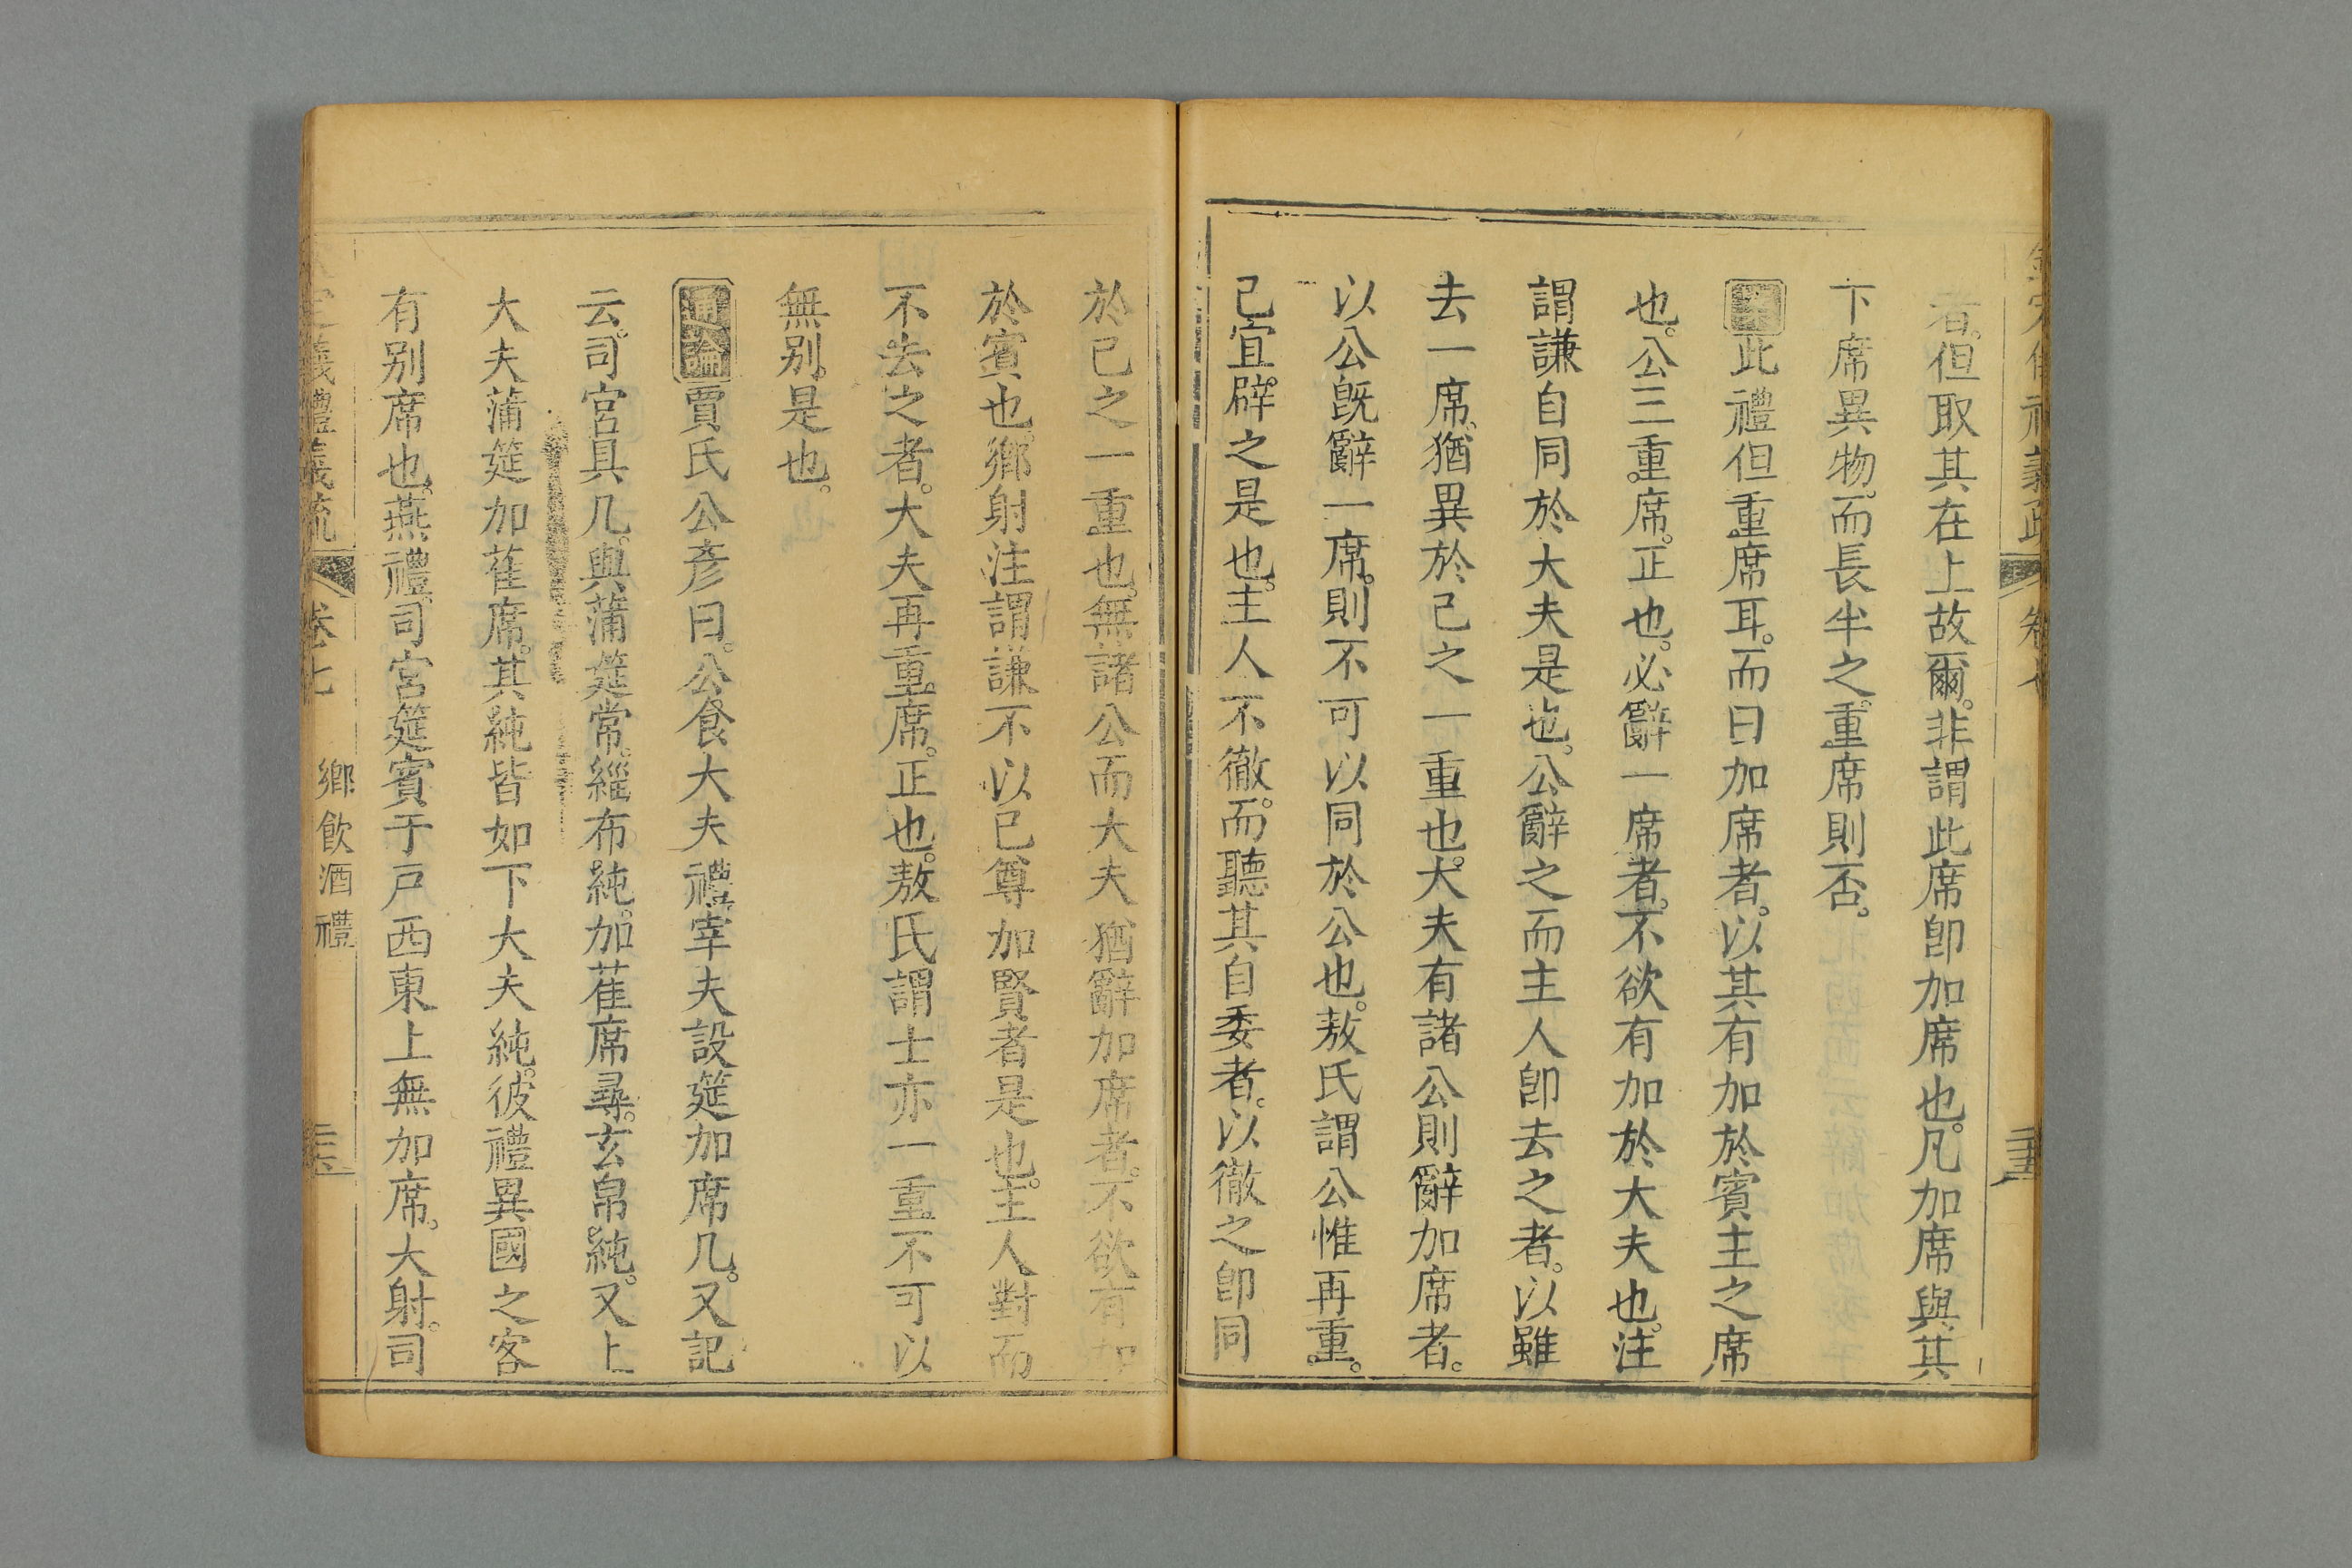 者。但取其在上故爾。非謂此席卽加席也。凡加席與其
下席異物。而長半之。重席則否。
案此禮但重席耳。而曰加席者。以其有加於賓主之席
也。公三重席。正也。必辭一席者。不欲有加於大夫也。注
謂謙自同於大夫是也。公辭之而主人卽去之者。以雖
去一席。猶異於己之一重也。大夫有諸公則辭加席者。
以公旣辭一席。則不可以同於公也。敖氏謂公惟再重。
己宜辟之是也。主人不徹。而聽其自委者。以徹之卽同
於己之一重也。無諸公而大夫猶辭加席者。不欲有加
於賓也。鄉射注謂謙不以己尊加賢者是也。主人對而
不去之者。大夫再重席。正也。敖氏謂士亦一重不可以
無别。是也。
通論賈氏公彥曰。公食大夫禮。宰夫設筵加席几。又記
云。司宮具几。與蒲筵常。緇布純。加萑席尋。玄帛純。又上
大夫蒲筵加萑席。其純皆如下大夫純。彼禮異國之客
有别席也。燕禮。司宮筵賓于戸西東上無加席。大射。司
定義禮義疏 卷七 鄉飮酒禮